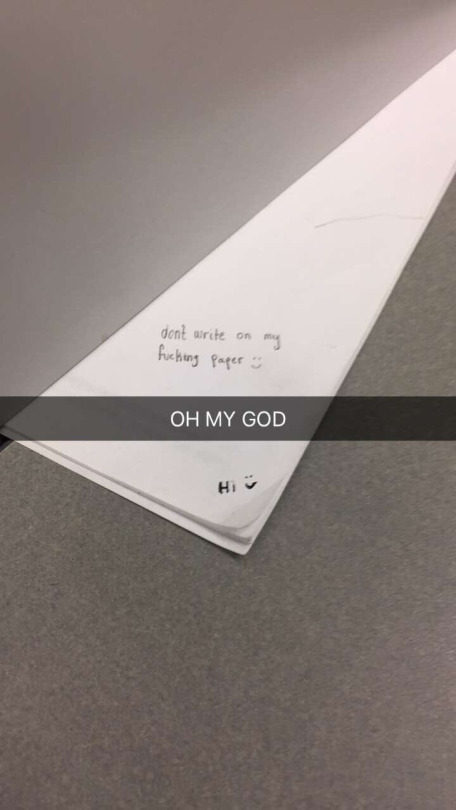 dont write on my
fucking paper :)
OH MY GOD
Hi :)